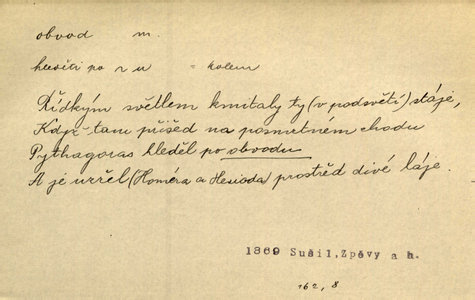 obvod m.
hleděti po 2 u = kolem
Řídkým světlem kmitaly ty (v podsvětí) stáje,
Když tam přišed na posmutném chodu
Pythagoras hleděl po obvodu
A je uzřel (Homéra a Hesioda) prostřed divé láje.
1869 Sušil, Zpěvy a h.
162, 8